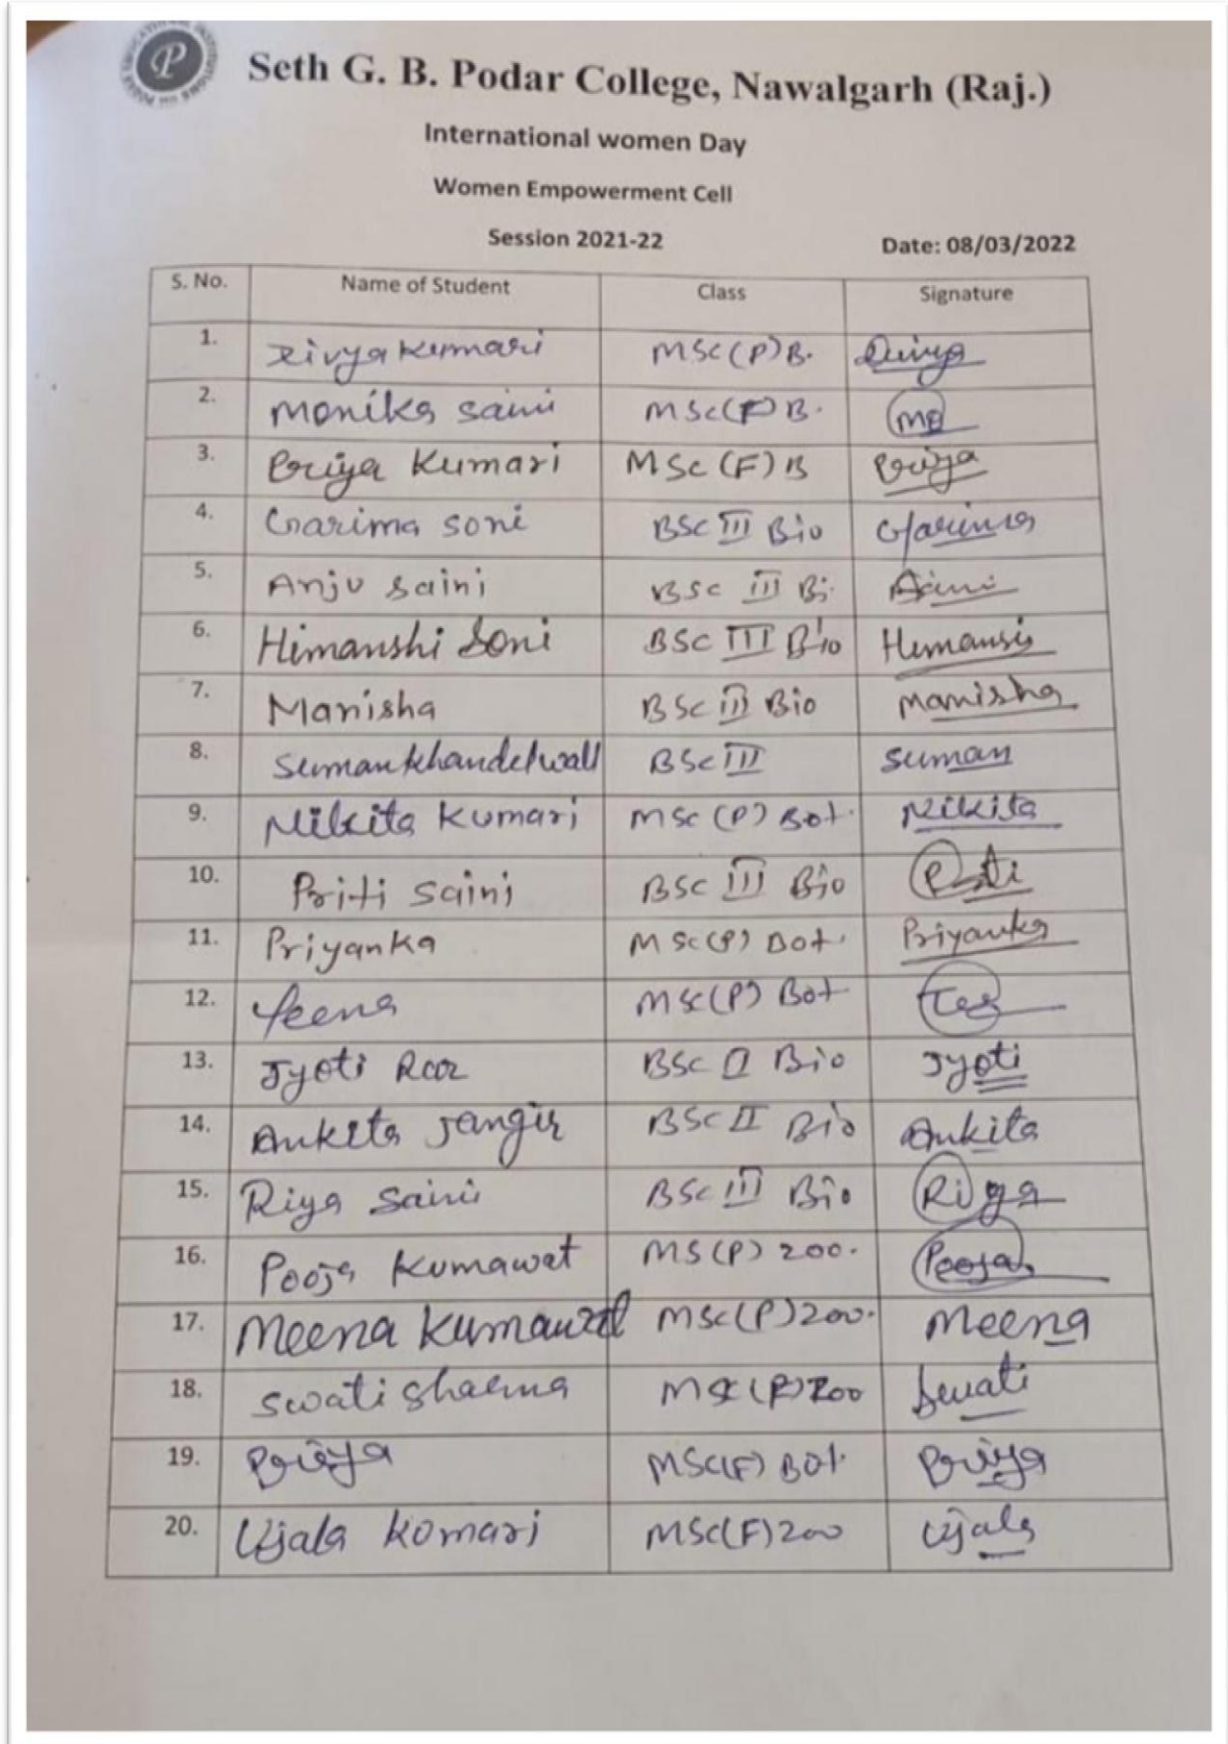 P
Seth G. B. Podar College, Nawalgarh (Raj.)
International women Day
Women Empowerment Cell
Session 2021-22 Date: 08/03/2022
S. No. Name of Student Class Signature
1. Divya Kumari MSc (P) B. Divya
2. Monika Saini MSc B.
3. Priya Kumari MSc (F) B Priya
4. Garima Soni BSc III Bio Garima
5. Anju Saini BSc III Bi.
6. Himanshi Soni BSc III Bio
7. Manisha BSc III Bio Manisha
8. Suman Khandelwall BSc III Suman
9. Nikita Kumari MSc (P) Bot. Nikita
10. Priti Saini BSc III Bio
11. Priyanka MSc (P) Bot. Priyanka
12. MSc (P) Bot
13. Jyoti BSc II Bio Jyoti
14. Ankita Jangir BSc II Bio Ankita
15. Riya Saini BSc III Bio Riya
16. Pooja Kumawat MS (P) Zoo. Pooja
17. Meena Kumawat MSc (P) Zoo. Meena
18. Swati Sharma (P) Zoo Swati
19. Priya MSc (F) Bot. Priya
20. Ujala Komari MSc (F) Zoo Ujala